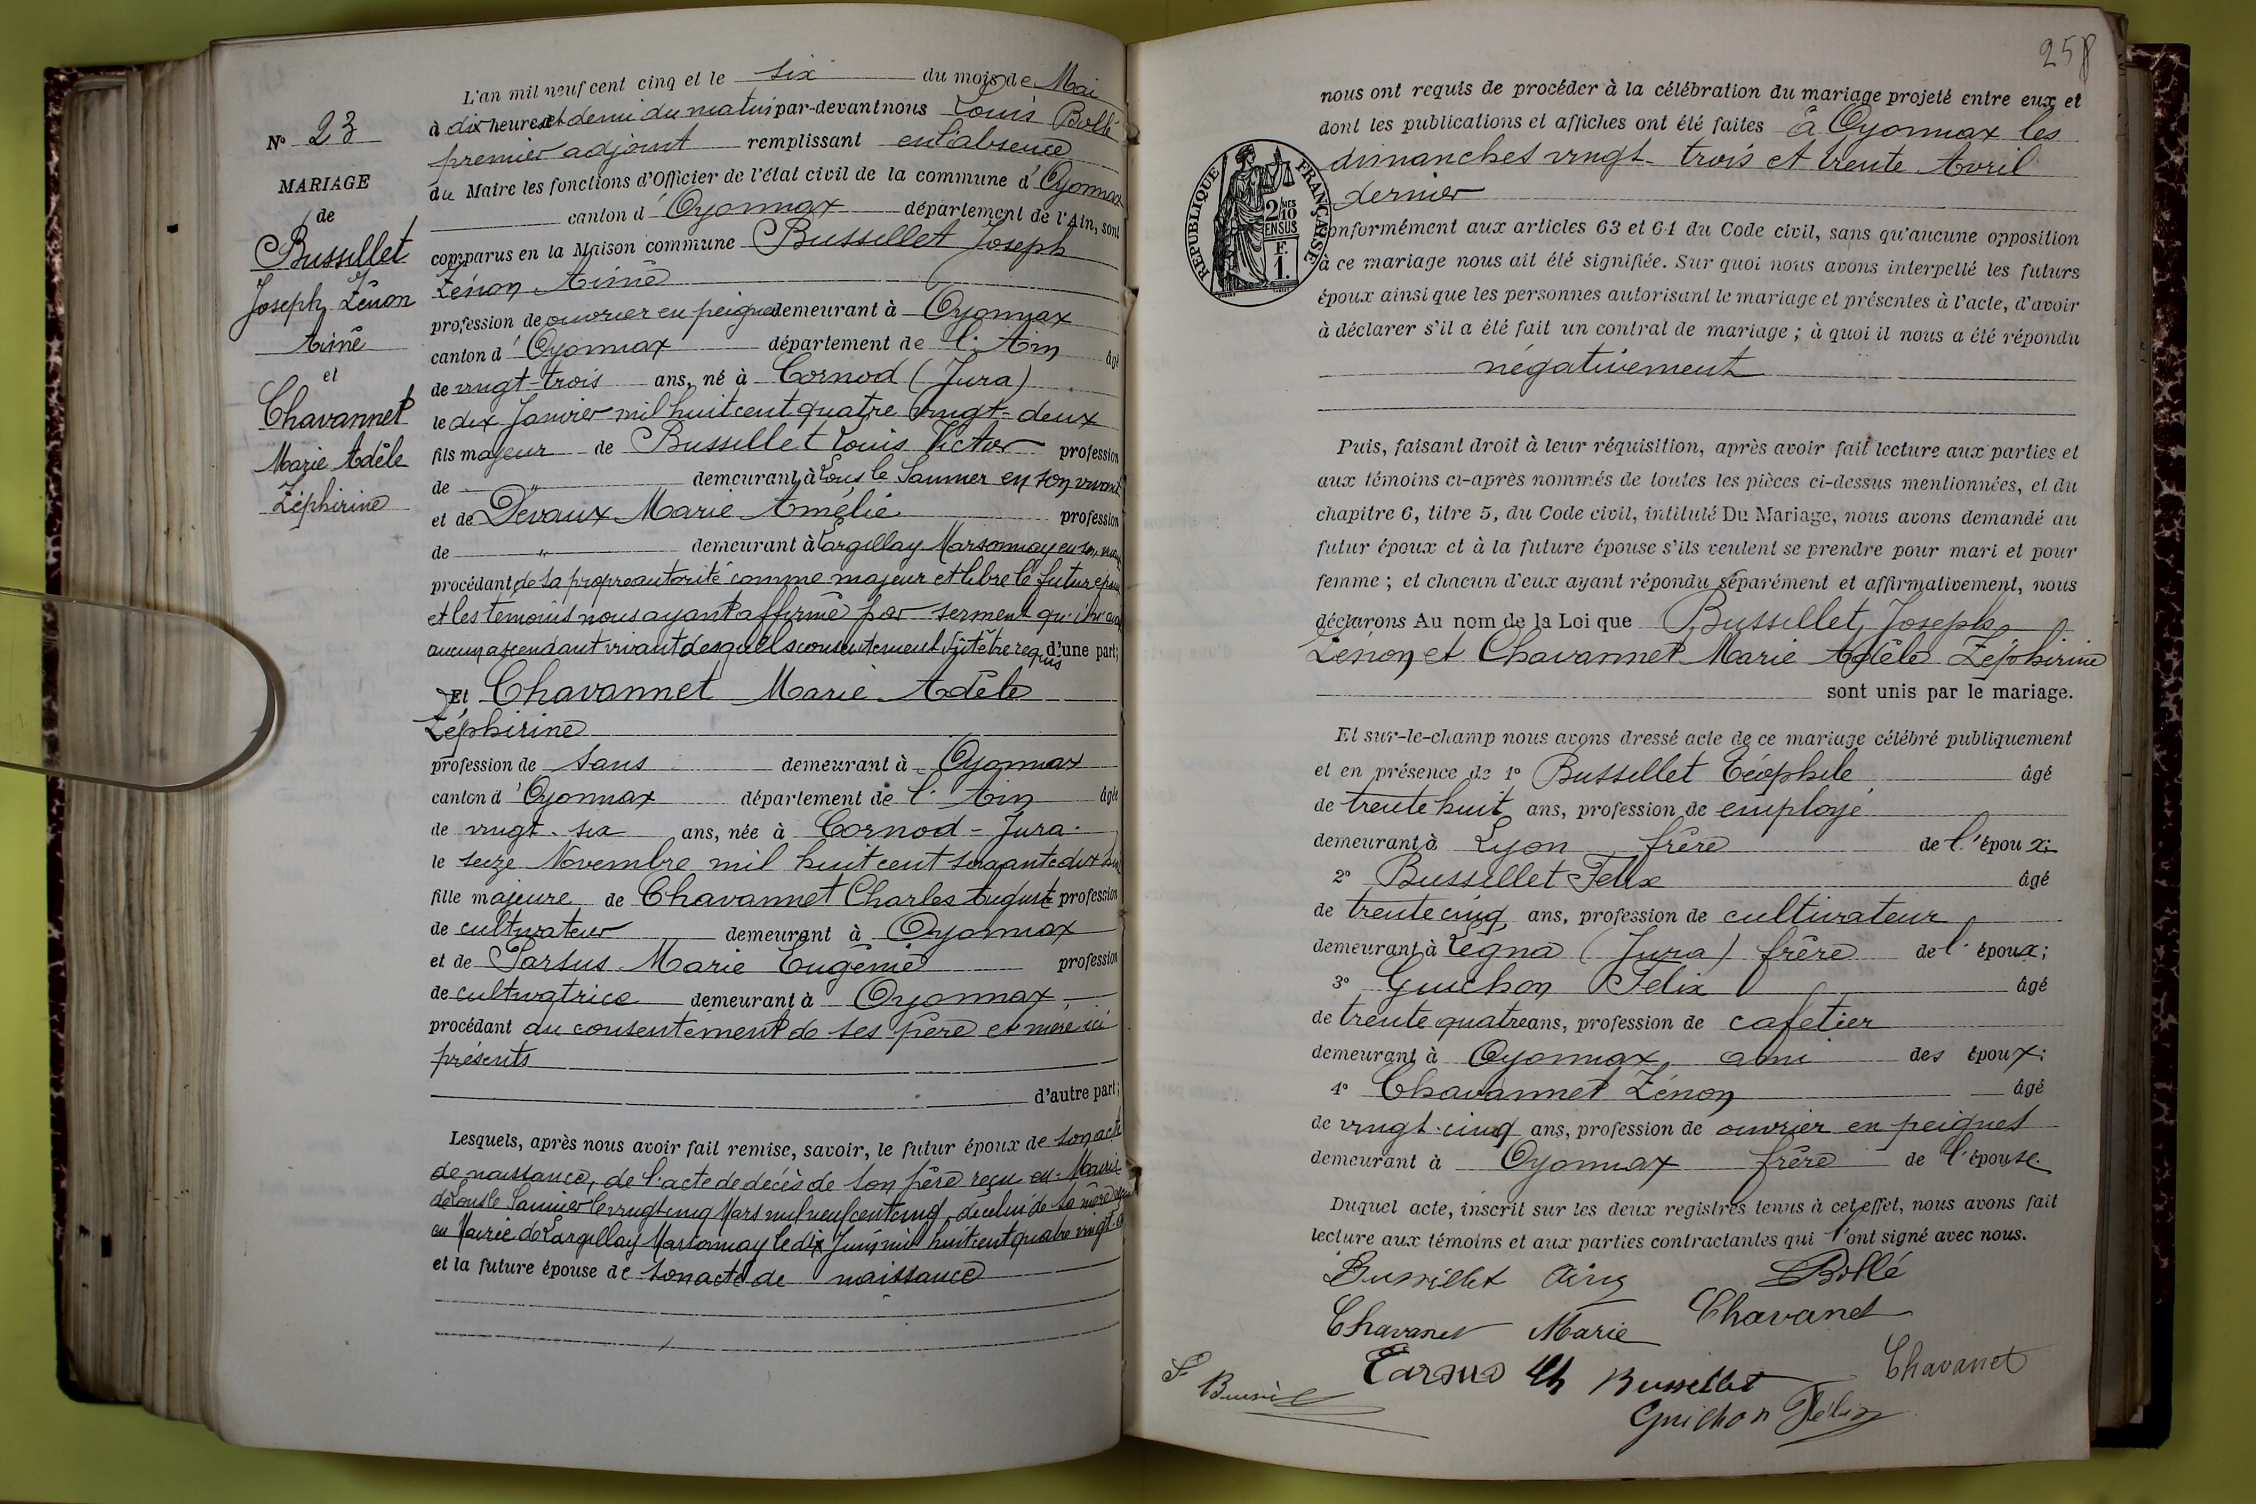 L'an mil neuf cent cinq et le six du mois de Mai
à dix heures et demi du matin par-devant nous Louis Bollé
premier adjoint remplissant en l'absence
du Maire les fonctions d'Officier de l'état civil de la commune d'Oyonnax
canton d'Oyonnax département de l'Ain, sont
comparus en la Maison commune Bussillet Joseph
Zénon Aimé
profession de ouvrier en peignes demeurant à Oyonnax
canton d'Oyonnax département de l'Ain âgé
de vingt-trois ans, né à Cornod (Jura)
le dix Janvier mil huit cent quatre vingt-deux
fils majeur de Bussillet Louis Victor profession
de " demeurant à Lons le Saunier en son vivant
et de Devaux Marie Amélie profession
de " demeurant à Largillay Marsonnay en son
procédant de sa propre autorité comme majeur et libre le futur époux
et les témoins nous ayant affirmé par serment qu'il n'a
aucun ascendant vivant desquels consentement dût être requis d'une part;
Et Chavannet Marie Adèle
Zéphirine
profession de sans demeurant à Oyonnax
canton d'Oyonnax département de l'Ain âgée
de vingt-six ans, née à Cornod - Jura.
le seize Novembre mil huit cent soixante dix huit
fille majeure de Chavannet Charles Auguste profession
de cultivateur demeurant à Oyonnax
et de Tarsus Marie Eugénie profession
de cultivatrice demeurant à Oyonnax
procédant du consentement de ses père et mère ici
présents
d'autre part;
Lesquels, après nous avoir fait remise, savoir, le futur époux de son acte
de naissance, de l'acte de décès de son père reçu en Mairie
de Lons le Saunier le vingt cinq Mars mil neuf cent cinq, de celui de sa mère
en Mairie de Largillay Marsonnay le dix Juin mil huit cent quatre vingt
et la future épouse de son acte de naissance
No 23
MARIAGE
de
Bussillet
Joseph Zénon
Aimé
et
Chavannet
Marie Adèle
Zéphirine
258
nous ont requis de procéder à la célébration du mariage projeté entre eux et
dont les publications et affiches ont été faites à Oyonnax les
dimanches vingt-trois et trente Avril
dernier
conformément aux articles 63 et 64 du Code civil, sans qu'aucune opposition
à ce mariage nous ait été signifiée. Sur quoi nous avons interpellé les futurs
époux ainsi que les personnes autorisant le mariage et présentes à l'acte, d'avoir
à déclarer s'il a été fait un contrat de mariage ; à quoi il nous a été répondu
négativement
RÉPUBLIQUE FRANÇAISE
2/10 MES
EN SUS
F
1.
Puis, faisant droit à leur réquisition, après avoir fait lecture aux parties et
aux témoins ci-après nommés de toutes les pièces ci-dessus mentionnées, et du
chapitre 6, titre 5, du Code civil, intitulé Du Mariage, nous avons demandé au
futur époux et à la future épouse s'ils veulent se prendre pour mari et pour
femme ; et chacun d'eux ayant répondu séparément et affirmativement, nous
déclarons Au nom de la Loi que Bussillet, Joseph
Zénon et Chavannet Marie Adèle Zéphirine
sont unis par le mariage.
Et sur-le-champ nous avons dressé acte de ce mariage célébré publiquement
et en présence de 1° Bussillet Téophile âgé
de trente huit ans, profession de employé
demeurant à Lyon frère de l'époux;
2° Bussillet Felix âgé
de trente cinq ans, profession de cultivateur
demeurant à Légna (Jura) frère de l'époux;
3° Guichon Félix âgé
de trente quatre ans, profession de cafetier
demeurant à Oyonnax, ami des époux;
4° Chavannet Zénon âgé
de vingt-cinq ans, profession de ouvrier en peignes
demeurant à Oyonnax frère de l'épouse
Duquel acte, inscrit sur les deux registres tenus à cet effet, nous avons fait
lecture aux témoins et aux parties contractantes qui l'ont signé avec nous.
Bussillet Aimé Bollé
Chavanet Marie Chavanet
Tarsus Th Bussillet Chavanet
F Bussillet
Guichon Félix